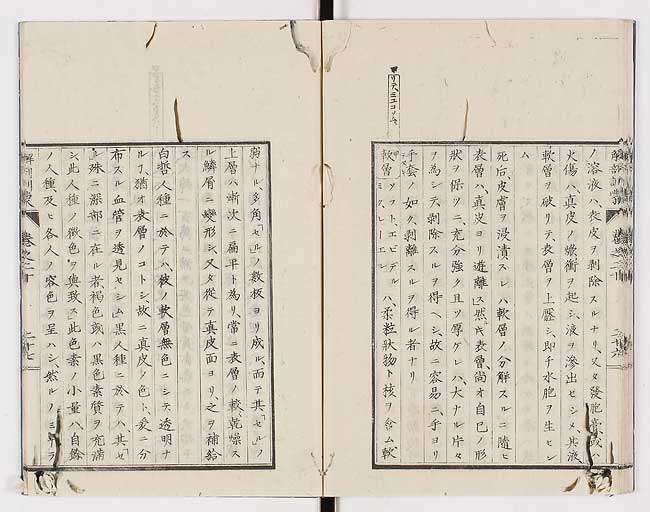 ノ溶液ハ、表皮ヲ剥除スルナリ、又タ發胞膏或ハ
火傷ハ、真皮ノ焮衝ヲ起シ、液ヲ滲出セシメ、其液
軟層ヲ破リテ、表層ヲ上壓シ、即チ水胞ヲ生セシ
ム
死后、皮膚ヲ浸漬スレハ軟層ノ分解スルニ隨ヒ
表層ハ、真皮ヨリ遊離ス、然ㇾ𪜈表層、尚オ自己ノ形
狀ヲ保ツニ、充分強ク且ツ厚ケレハ、大ナル片々
ヲ為シテ、剥除スルヲ得ヘシ、故ニ容易ニ、手ヨリ
手套ノ如ク、剥離スルヲ得ル者ナリ
軟層ソフト、エピデルミク、レーエルハ、柔粒狀物ト核ヲ含ム軟
弱ナル多角「セル」ノ數板ヨリ成ル、而テ其「セル」ノ
上層ハ漸次ニ扁平ト為リ、常ニ表層ノ較、乾燥ス
ル鱗屑ニ變形シ、又タ從テ真皮面ヨリ、之ヲ補給
ス
白哲人種ニ於テハ、彼ノ軟層無色ニシテ透明ナ
ル丁、猶オ表層ノコトシ、故ニ真皮ノ色ト、爰ニ分
布スル血管ヲ透見セシム、黒人種ニ於テハ、其「セ
ル」殊ニ深部ニ在ル者、褐色或ハ黒色素質ヲ充滿
シ、此人種ノ徴色ヲ與致ス、此色素ノ小量ハ、自餘
ノ人種及ヒ各人ノ容色ヲ呈ハシ、然ルノミナラ
巻之二十